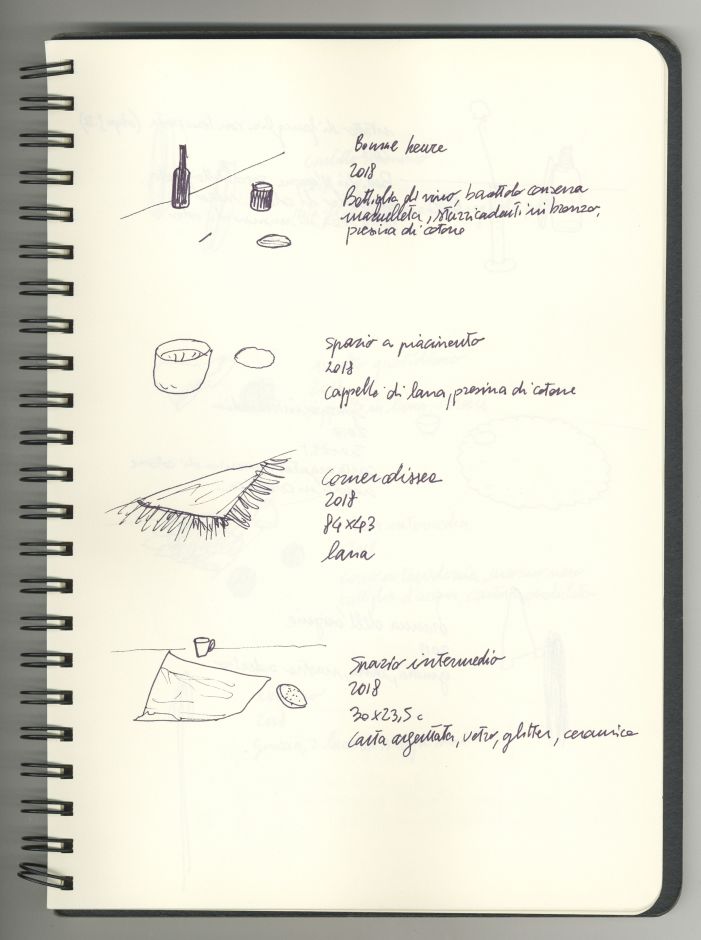 Bonne heure
2018
Bottiglia di vino, barattolo con senza
marmellata, stuzzicadenti in bronzo,
presina di cotone
Spazio a piacimento
2018
cappello di lana, presina di cotone
Come
2018
84x43
lana
Spazio intermedio
2018
30x23,5 c
Carta argentata, vetro, glitter, ceramica